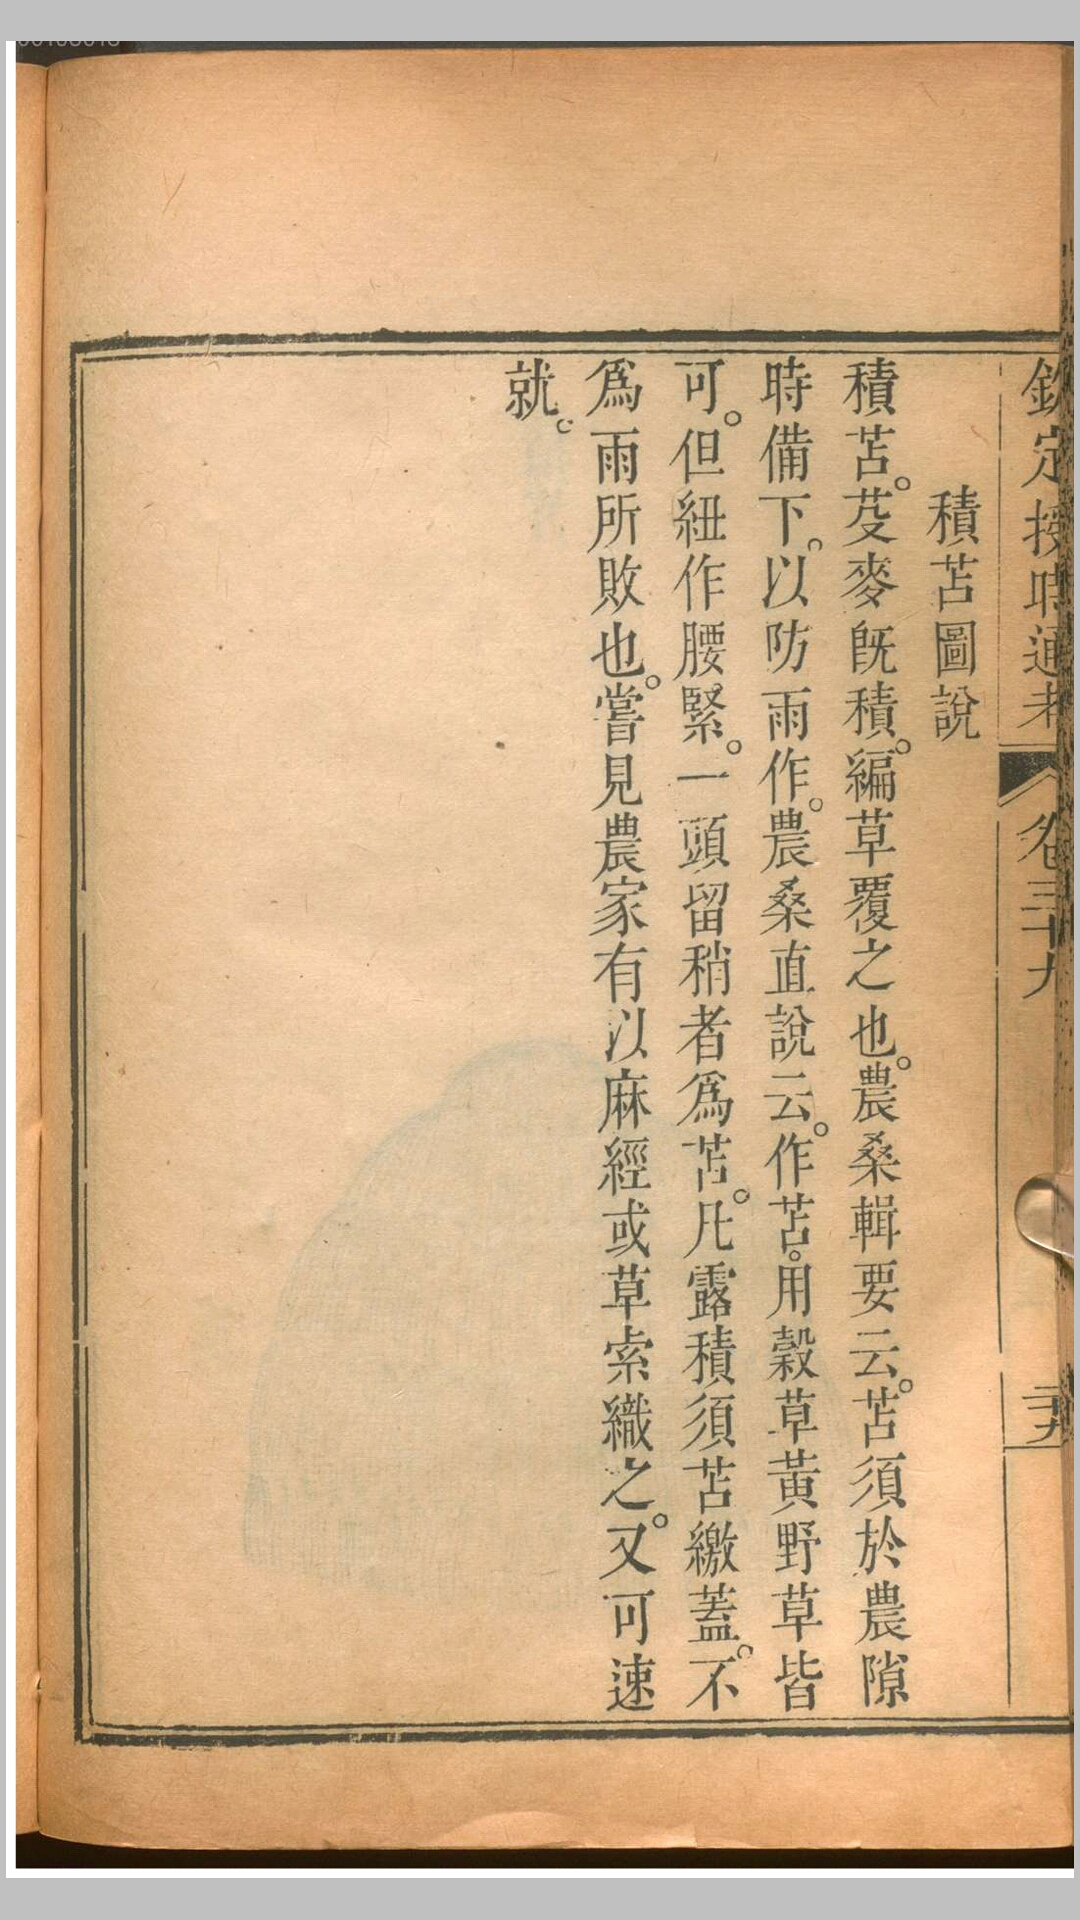 欽定授時通考
卷三十九
積苫圖說
積苫。芟麥既積。編草覆之也。農桑輯要云。苫須於農隙
時備下。以防雨作。農桑直說云。作苫。用穀草黃野草皆
可。但紐作腰緊。一頭留稍者爲苫。凡露積須苫繳蓋。不
爲雨所敗也。嘗見農家有以麻經或草索織之。又可速
就。